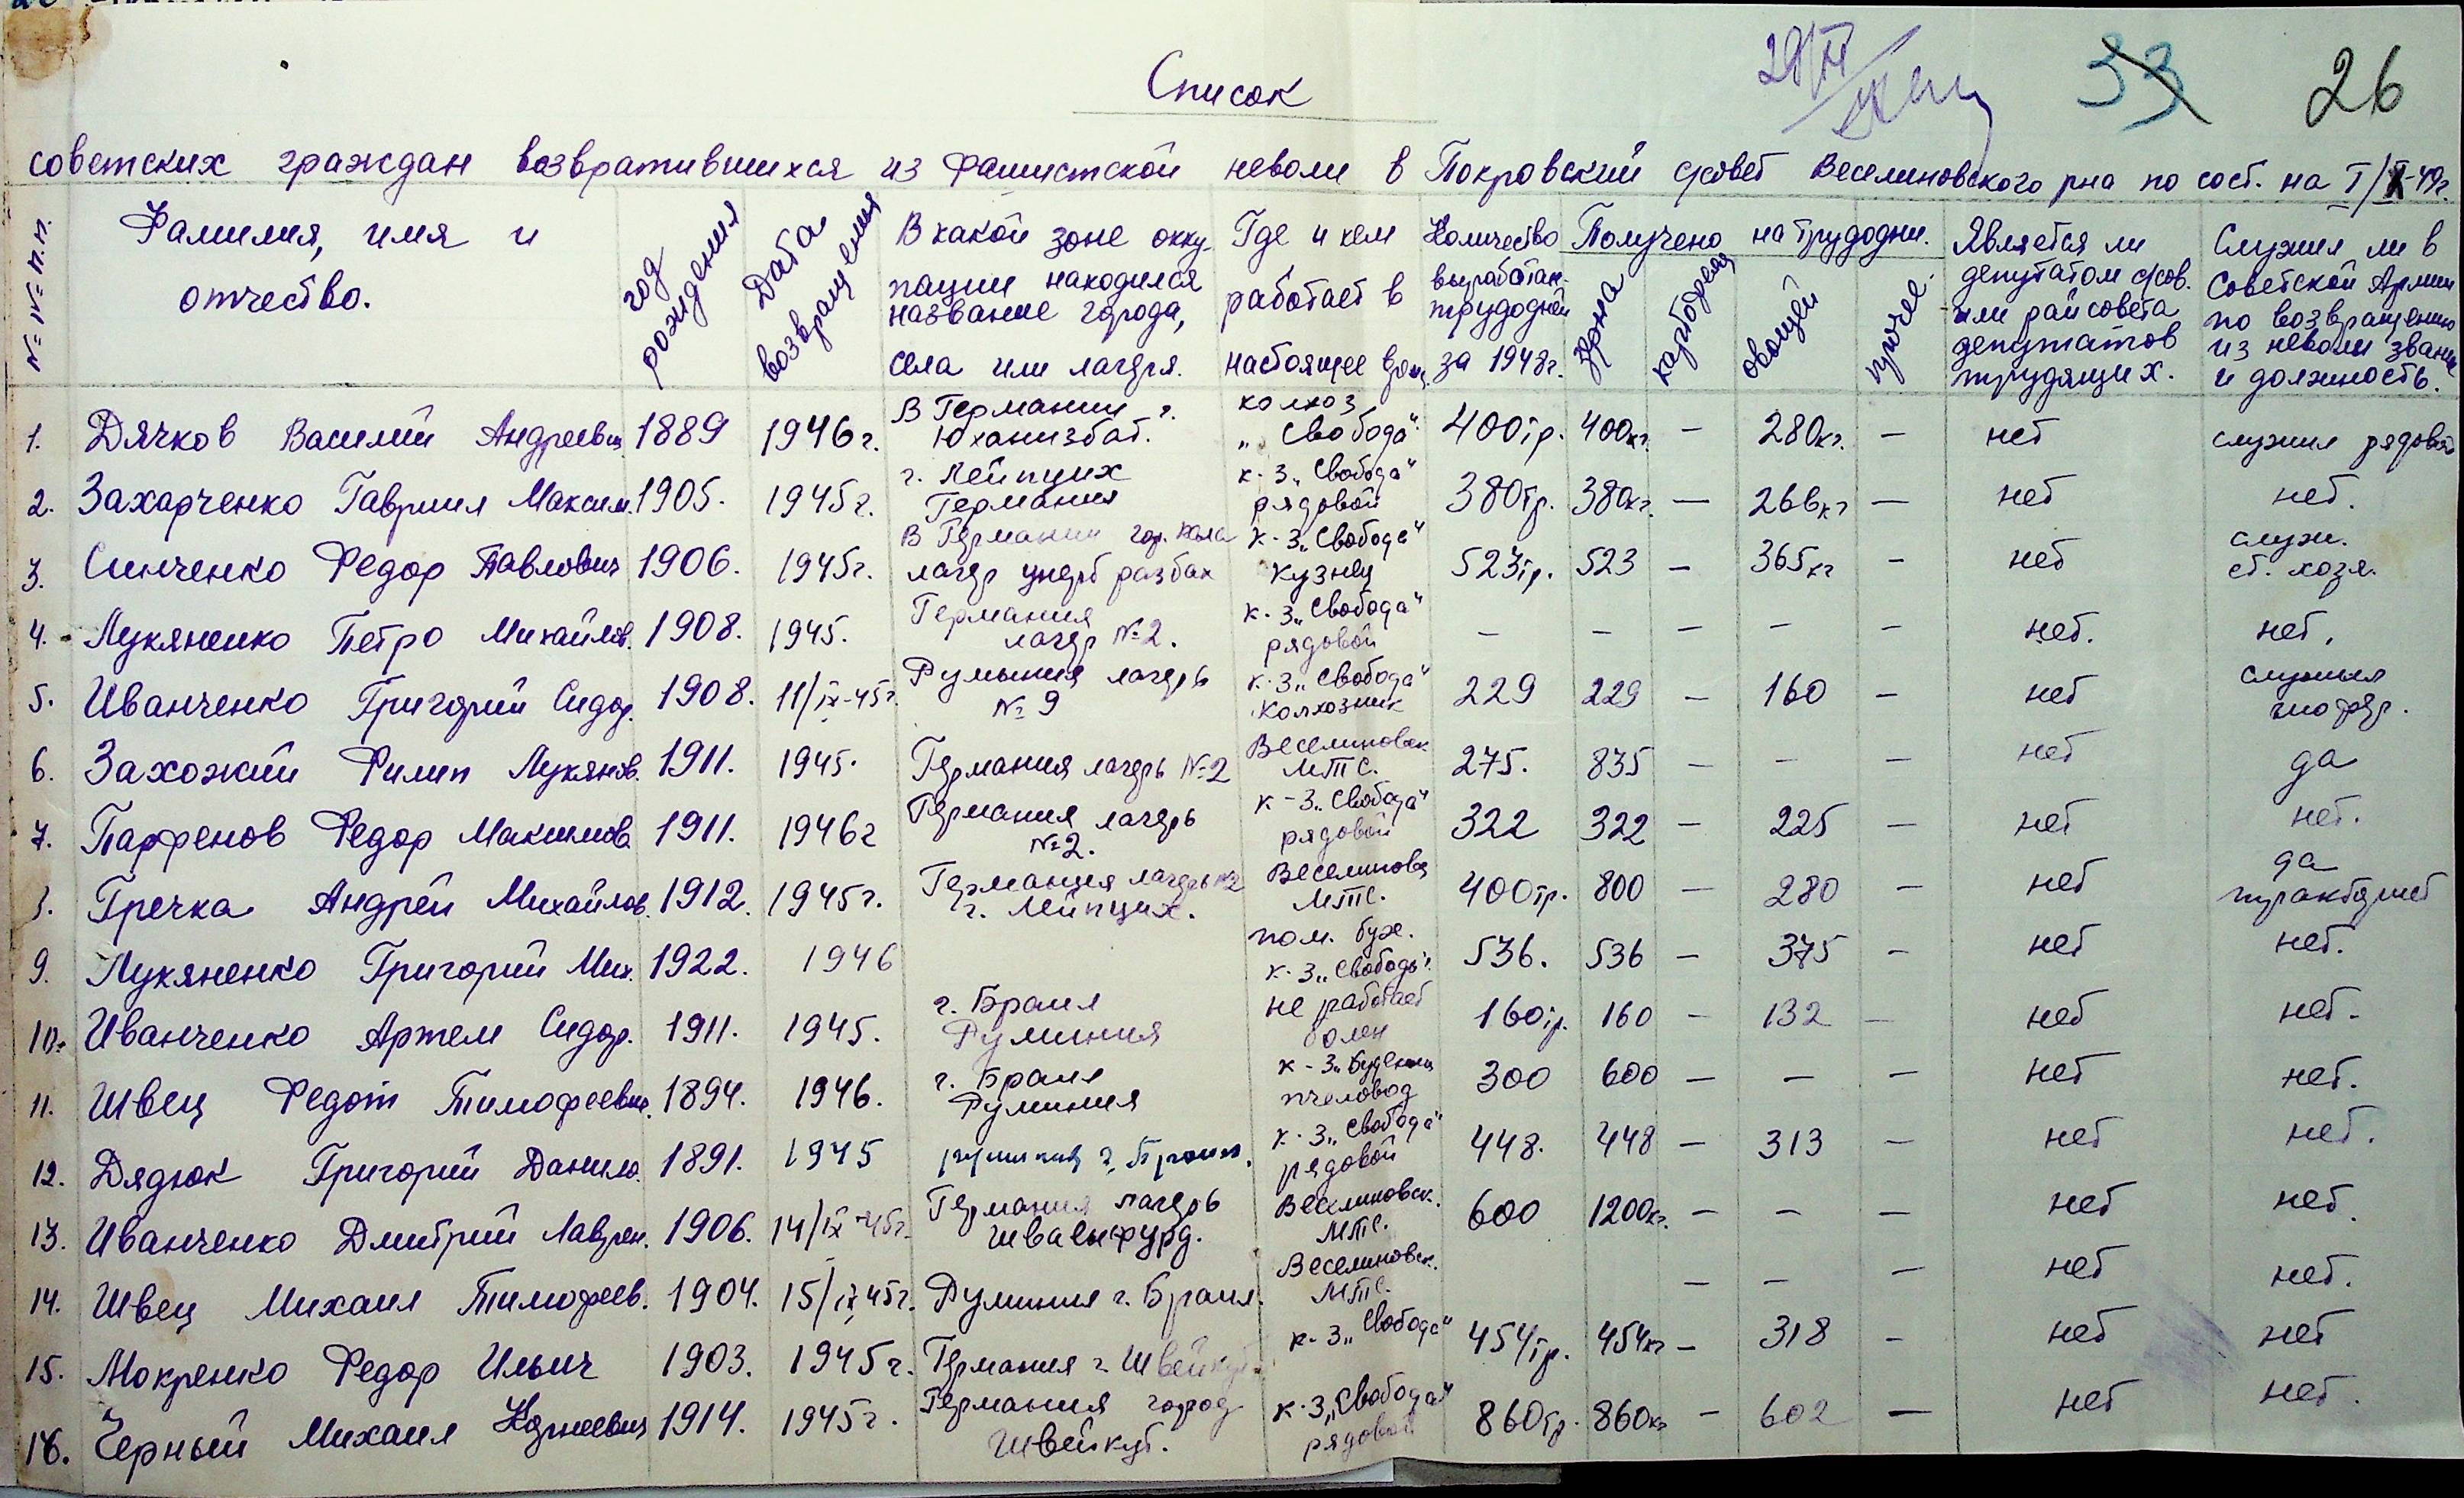 Список
33
26
советских граждан возвратившихся из фашистской неволи в Покровский с/совет Веселиновского р-на по сост. на 1/X-49г.
№ № п.п. Фамилия, имя и отчество. год рождения Дата возвращения В какой зоне оккупации находился название города, села или лагеря. Где и кем работает в настоящее врем. Количество выработан. трудодней за 1948г. Получено на трудодни. зерна картофеля овощей прочее. Является ли депутатом с/сов. или райсовета депутатов трудящих. Служил ли в Советской Армии по возвращению из неволи звание и должность.
1. Дячков Василий Андреевич 1889 1946г. В Германии г. Юханизбат. колхоз „Свобода" 400тр. 400кг. – 280кг. – нет служил рядовой
2. Захарченко Гавриил Максим. 1905. 1945г. г. Лейпцих Германия к-з „Свобода" рядовой 380тр. 380кг. – 266кг – нет нет.
3. Синченко Федор Павлович 1906. 1945г. В Германии гор. лагер к-з „Свобода" кузнец 523тр. 523 – 365кг – нет служ. ст. хозя.
4. Лукяненко Петро Михайлов. 1908. 1945. Германия лагер №2. к-з „Свобода" рядовой – – – – – нет. нет.
5. Иванченко Григорий Сидор. 1908. 11/IX-45г. Румыния лагерь №9 к-з „Свобода" колхозник 229 229 – 160 – нет служил
6. Захожий Филип Лукянов. 1911. 1945. Германия лагерь №2 Веселиновск МТС. 275. 835 – – – нет да
7. Парфенов Федор Максимов. 1911. 1946г Германия лагерь №2. к-з „Свобода" рядовой 322 322 – 225 – нет нет.
8. Гречка Андрей Михайлов. 1912. 1945г. Германия лагерь №2 г. Лейпцих. Веселиновск МТС. 400тр. 800 – 280 – нет да
9. Лукяненко Григорий Мих. 1922. 1946 пом. бух. к-з „Свобода". 536. 536 – 375 – нет нет.
10. Иванченко Артем Сидор. 1911. 1945. г. Браил Румыния не работает болен 160тр. 160 – 132 – нет нет.
11. Швец Федот Тимофеевич. 1894. 1946. г. Браил Румыния к-з „Буденый пчеловод 300 600 – – – нет нет.
12. Дядюк Григорий Данило. 1891. 1945 румыния г. Браил. к-з „Свобода" рядовой 448. 448 – 313 – нет нет.
13. Иванченко Дмитрий Лаврен. 1906. 14/IX-45г. Германия лагерь Швавынфурд. Веселиновск. МТС. 600 1200кг. – – – нет нет.
14. Швец Михаил Тимофеев. 1904. 15/IX 45г. Румыния г. Браил. Веселиновск. МТС. – – – нет нет.
15. Мокренко Федор Ильич 1903. 1945г. Германия г. Швейкут. к-з „Свобода" 454тр. 454кг – 318 – нет нет
16. Черный Михаил Корнеевич 1914. 1945г. Германия город Швейкут. к-з „Свобода" рядовой 860тр. 860кг – 602 – нет нет.